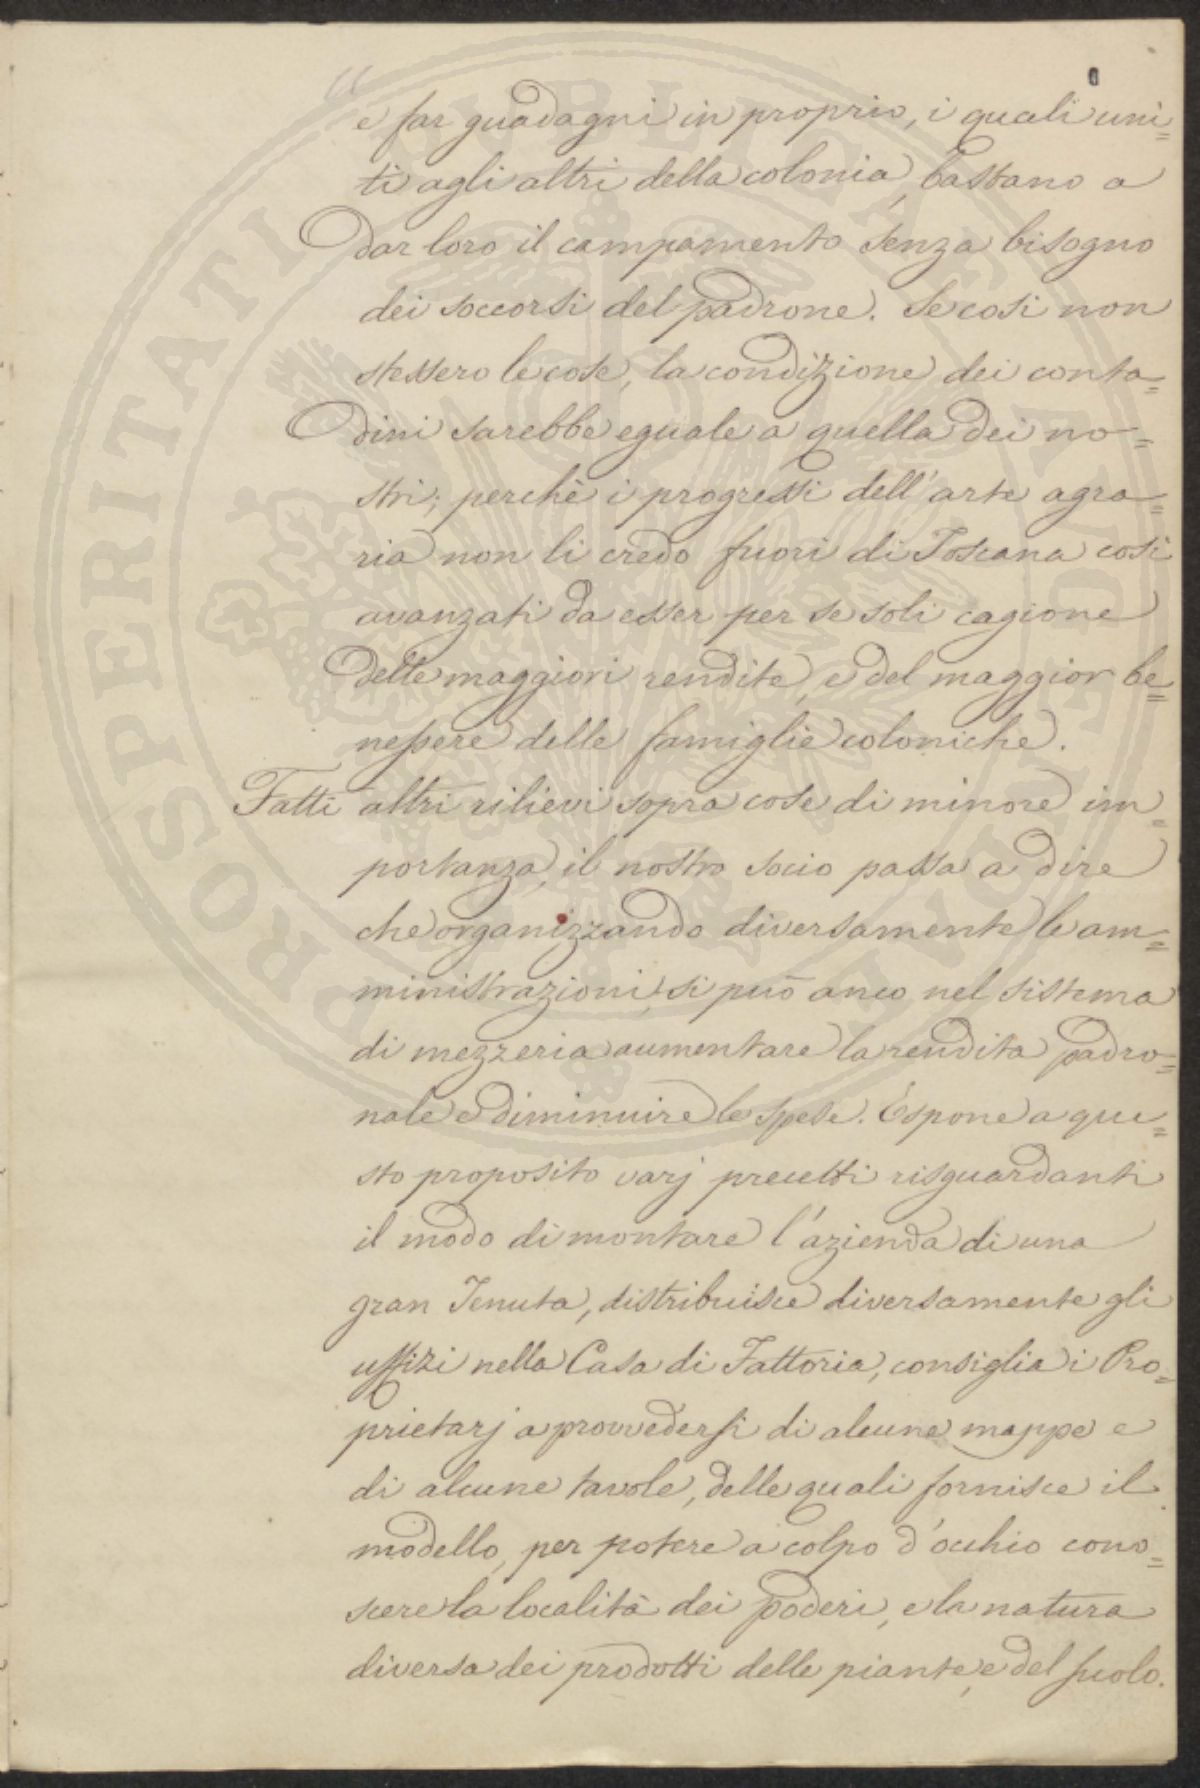 e far guadagni in proprio, i quali uni=
ti agli altri della colonia, bastano a
dar loro il campamento senza bisogno
dei soccorsi del padrone. Se così non
stessero le cose, la condizione dei conta=
dini sarebbe eguale a quella dei no=
stri; perchè i progressi dell'arte agra=
ria non li credo fuori di Toscana così
avanzati da esser per se soli cagione
delle maggiori rendite, e del maggior be=
nessere delle famiglie coloniche.
Fatti altri rilievi sopra cose di minore im=
portanza, il nostro socio passa a dire
che organizzando diversamente le am=
ministrazioni, si può anco nel sistema
di mezzeria aumentare la rendita padro=
nale e diminuire le spese. Espone a que=
sto proposito varj precetti risguardanti
il modo di montare l'azienda di una
gran Tenuta, distribuisce diversamente gli
uffizi nella Casa di Fattoria, consiglia i Pro=
prietarj a provvedersi di alcune mappe e
di alcune tavole, delle quali fornisce il
modello, per potere a colpo d'occhio cono=
scere la località dei poderi, e la natura
diversa dei prodotti delle piante, e del suolo.
PROSPERITATI PUBLICAE AUGENDAE